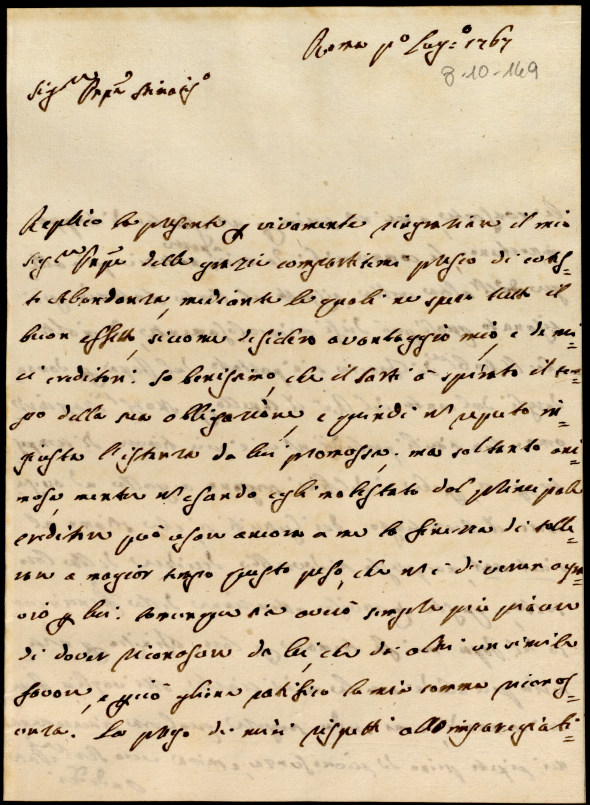 Roma p.º Lug.º 1767
8-10-149
Sig.re
Replico la presente p vivamente ringraziare il mio
Sig.re delle grazie compartitemi presso di cons=
to Abondanza, mediante le quali ne spero tutto il
buon effetto, siccome desidero avantaggio mio, e de mi=
ei creditori. So benissimo, che il Sarti à spirato il tem=
po della sua obligazione, e quindi nõ reputo in=
giusta l'istanza da lui promossa; ma soltanto ani=
mosa, mentre nõ essendo egli molestato dal principale
creditore può usare ancora a me la finezza di tolle=
rare a magior tempo questo peso, che nõ è di verun agra
vio p lui. Comunque sia averò sempre più piacere
di dover riconoscere da lei, che da altri un simile
favore, e p ciò gliene ratifico la mia somma riconos=
cenza. La prego de miei rispetti all'impareggiabi=